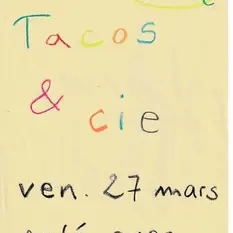 Tacos
& cie
ven. 27 mars